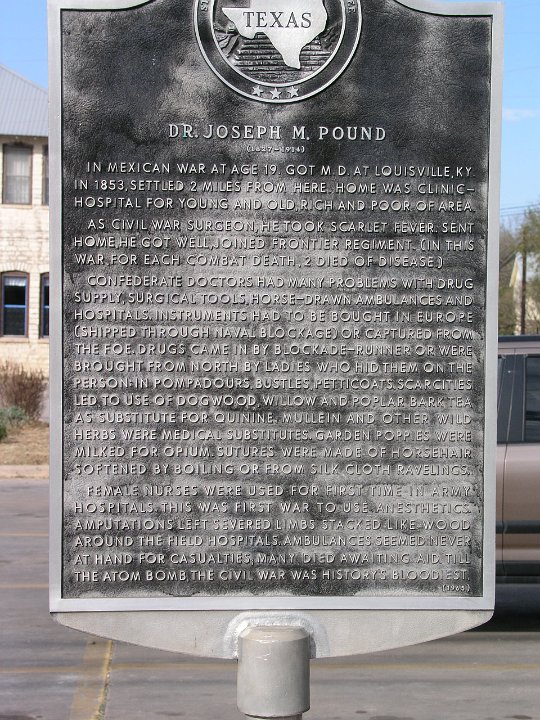 TEXAS
DR. JOSEPH M. POUND
(1827-1914)
IN MEXICAN WAR AT AGE 19. GOT M.D. AT LOUISVILLE, KY.
IN 1853, SETTLED 2 MILES FROM HERE. HOME WAS CLINIC-
HOSPITAL FOR YOUNG AND OLD, RICH AND POOR OF AREA.
AS CIVIL WAR SURGEON, HE TOOK SCARLET FEVER. SENT
HOME, HE GOT WELL, JOINED FRONTIER REGIMENT. (IN THIS
WAR, FOR EACH COMBAT DEATH, 2 DIED OF DISEASE.)
CONFEDERATE DOCTORS HAD MANY PROBLEMS WITH DRUG
SUPPLY, SURGICAL TOOLS, HORSE-DRAWN AMBULANCES AND
HOSPITALS. INSTRUMENTS HAD TO BE BOUGHT IN EUROPE
(SHIPPED THROUGH NAVAL BLOCKAGE) OR CAPTURED FROM
THE FOE. DRUGS CAME IN BY BLOCKADE-RUNNER OR WERE
BROUGHT FROM NORTH BY LADIES WHO HID THEM ON THE
PERSON-IN POMPADOURS, BUSTLES, PETTICOATS. SCARCITIES
LED TO USE OF DOGWOOD, WILLOW AND POPLAR BARK TEA
AS SUBSTITUTE FOR QUININE. MULLEIN AND OTHER WILD
HERBS WERE MEDICAL SUBSTITUTES. GARDEN POPPIES WERE
MILKED FOR OPIUM. SUTURES WERE MADE OF HORSEHAIR
SOFTENED BY BOILING OR FROM SILK CLOTH RAVELINGS.
FEMALE NURSES WERE USED FOR FIRST TIME IN ARMY
HOSPITALS. THIS WAS FIRST WAR TO USE ANESTHETICS.
AMPUTATIONS LEFT SEVERED LIMBS STACKED LIKE WOOD
AROUND THE FIELD HOSPITALS. AMBULANCES SEEMED NEVER
AT HAND FOR CASUALTIES. MANY DIED AWAITING AID. TILL
THE ATOM BOMB, THE CIVIL WAR WAS HISTORY'S BLOODIEST.
(1965)